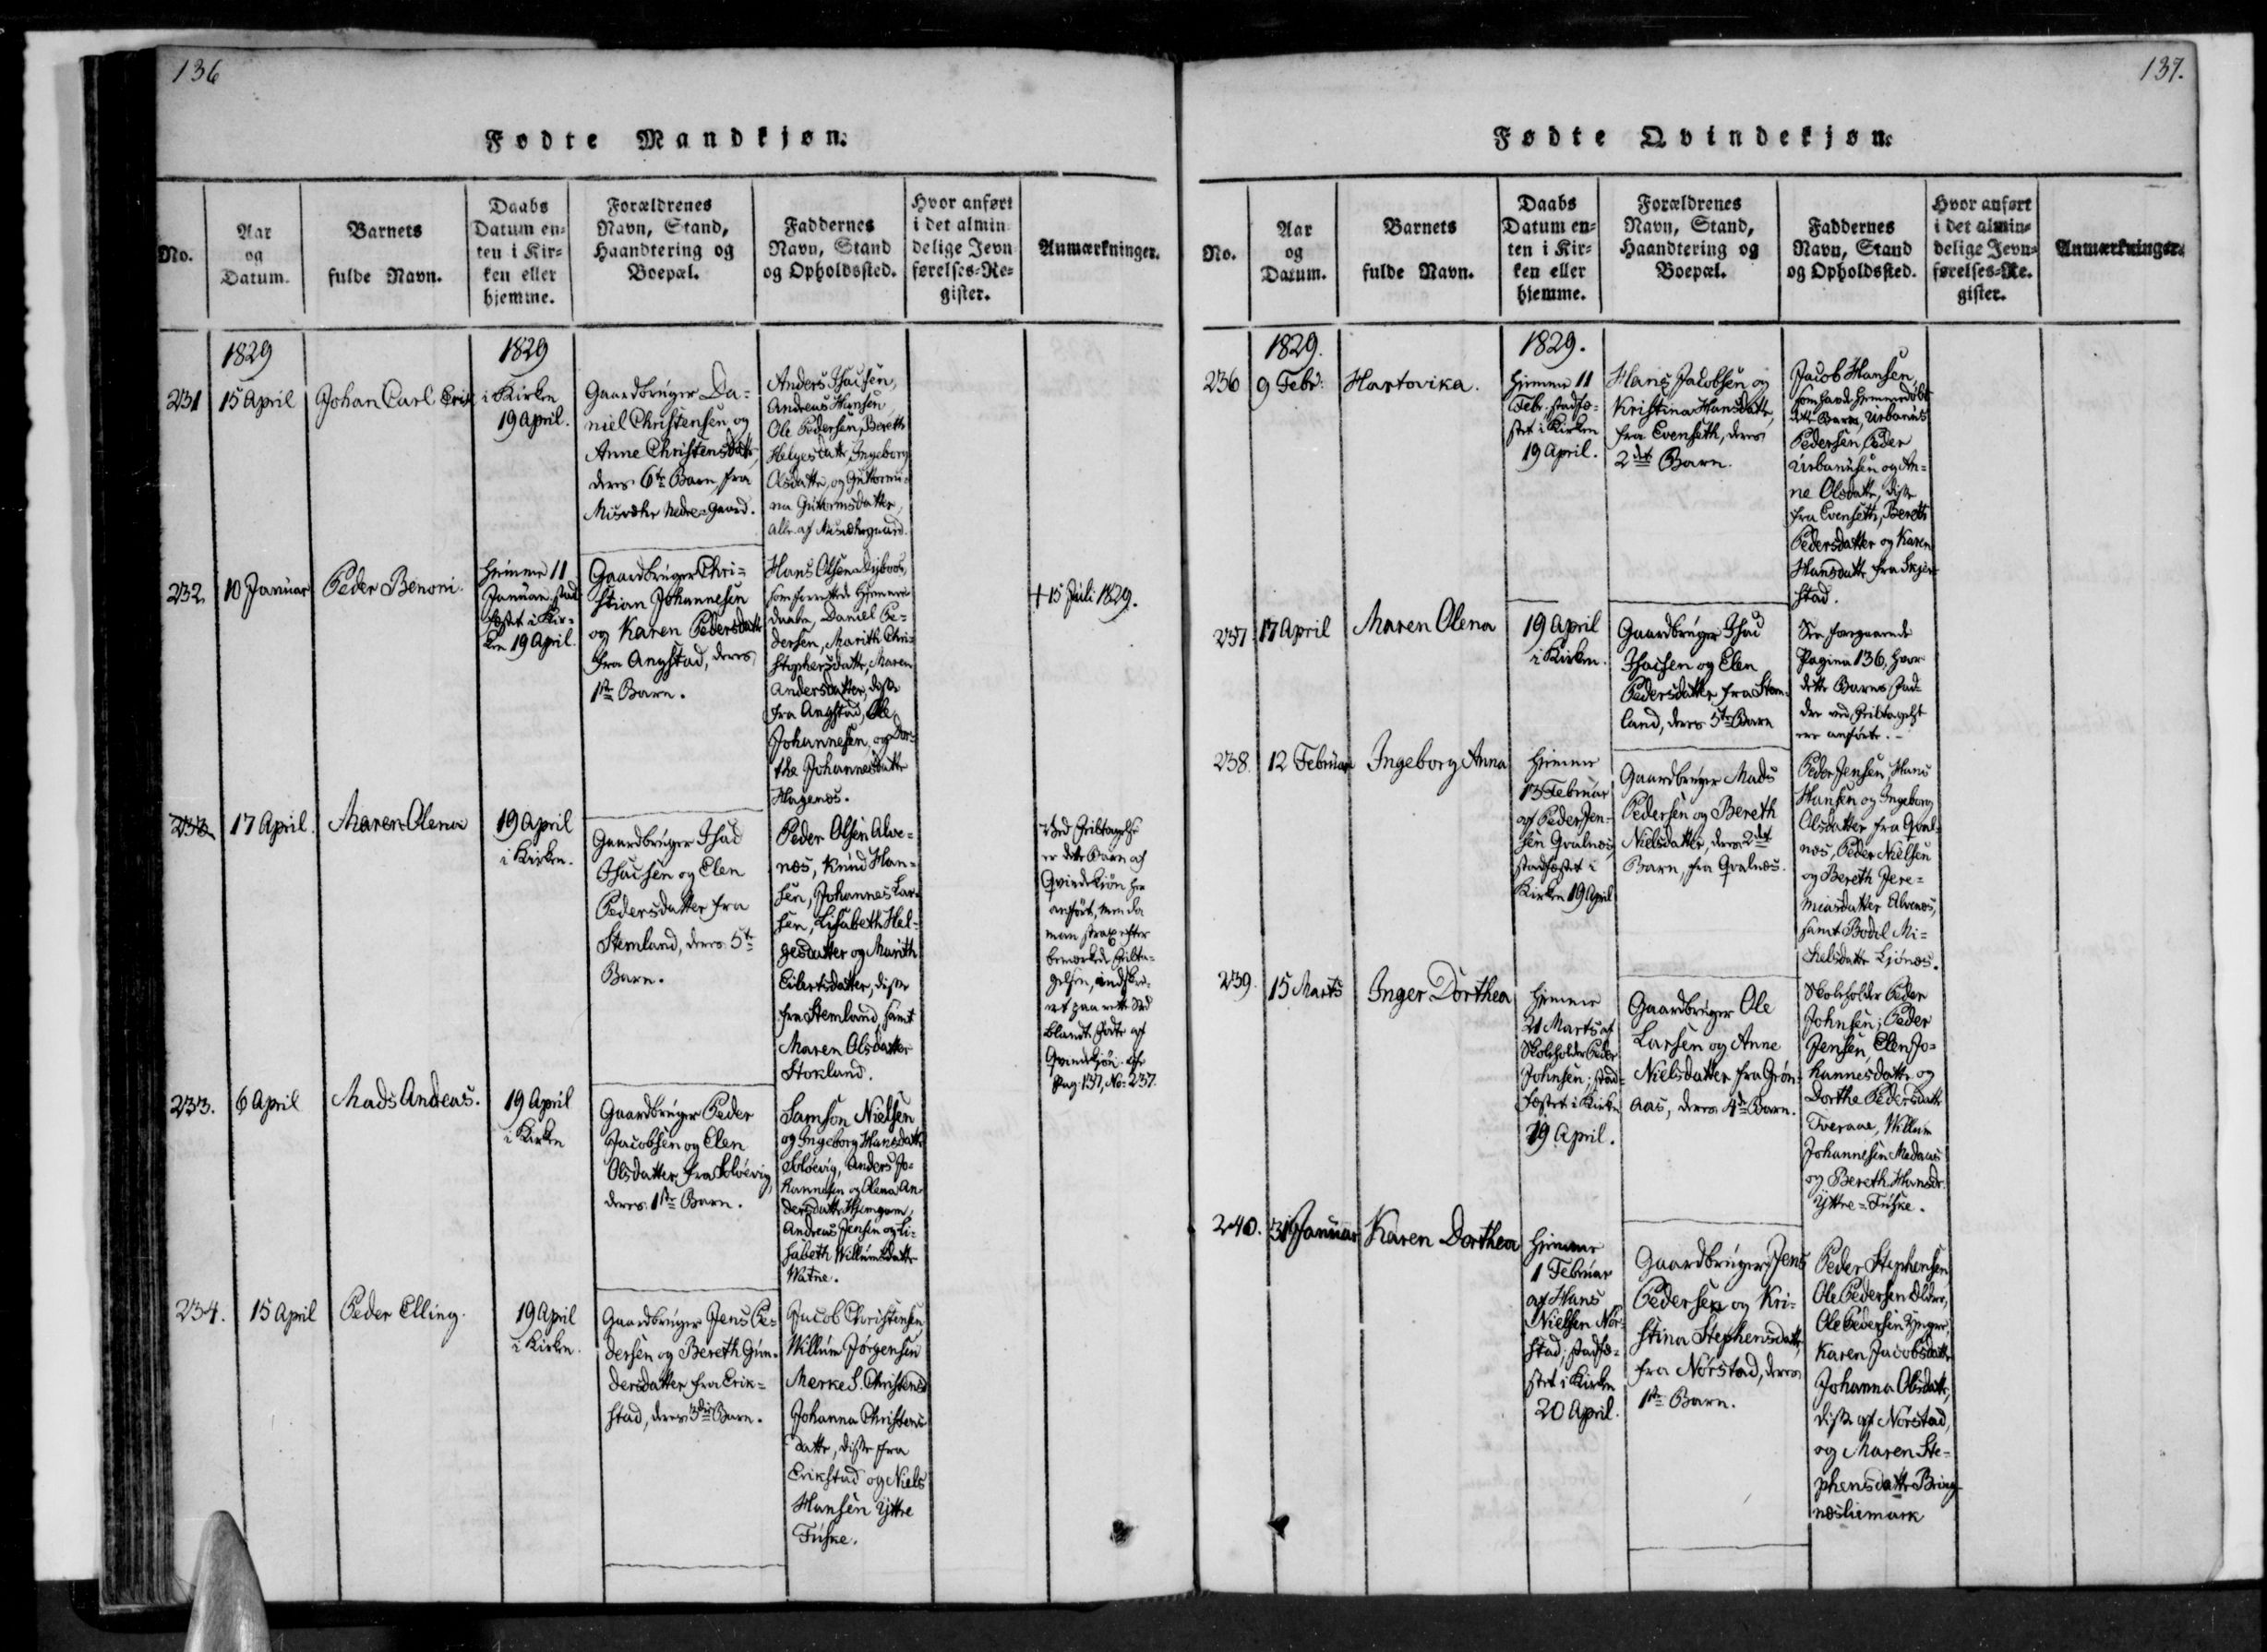 136
Fødte Mandkjøn.
No.
Aar
og
Datum.
Barnets
fulde Navn.
Daabs
Datum en-
ten i Kir-
ken eller
hjemme.
Forældrenes
Navn, Stand,
Haandtering og
Boepæl.
Faddernes
Navn, Stand
og Opholdssted.
Hvor anført
i det almin-
delige Jevn
førelses-Re-
gister.
Anmærkninger.
1829
1829
231
15 April
Johan Carl Erik
i Kirken
19 April.
Gaardbruger Da-
niel Christensen og
Anne Christensdatter,
deres 6te Barn, fra
Misvær Nedre-Gaard.
Anders Isacsen,
Andreas Hansen,
Ole Pedersen, Bereth
Helgesdatter, Ingeborg
Olsdatter, og Guttormi-
na Guttormsdatter,
alle af
232.
10 Januar
Peder Benoni.
Hjemme 11
Januar, stad
fæstet i Kir-
ken 19 April.
Gaardbruger Chri-
stian Johannesen
og Karen Pedersdatter
fra Angstad, deres
1ste Barn.
Hans Olsen
som forrettede Hjemme-
daaben, Daniel Pe-
dersen, Marith Chri-
stophersdatter, Maren
Andersdatter, disse
fra Angstad, Ole
Johannesen, og Dor-
the Johannesdatter
Hagenæs.
+ 15 Juli 1829.
233
17 April.
Maren Olena
19 April
i Kirken.
Gaardbruger Isac
Isacsen og Elen
Pedersdatter fra
Stemland, deres 5te
Barn.
Peder Olsen Alve-
næs, Knud Han-
sen, Johannes Lar-
sen, Lisabeth Hel-
gesdatter og Marith
Eilertsdatter, disse
fra Stemland, samt
Maren Olsdatter
Stokland.
Ved Feiltagelse
er dette Barn af
Qvindekjøn her
anført, men da
man strax efter
bemærkede Feilta-
gelsen, indskre-
vet paa rette Sted
blandt Fødte af
Qvindekjøn. See
Pag: 137, No: 237.
233.
6 April
Mads Andreas.
19 April
i Kirken
Gaardbruger Peder
Jacobsen og Elen
Olsdatter fra Soløevig,
deres 1ste Barn.
Samson Nielsen
og Ingeborg Hansdatter
Soløevig, Anders Jo-
hannesen og Olena An-
dersdatter
Andreas Jensen og Li-
sabeth Willumsdatter
Watne.
234.
15 April
Peder Elling.
19 April
i Kirken.
Gaardbruger Jens Pe-
dersen og Bereth Gun-
dersdatter fra Erik-
stad, deres 3die Barn.
Jacob Christensen
Willum Jørgensen
Christensd
Johanna Christens-
datter, disse fra
Erikstad og Niels
Hansen Yttre
Fuske.
137.
Fødte Qvindekjøn.
No.
Aar
og
Datum.
Barnets
fulde Navn.
Daabs
Datum en-
ten i Kir-
ken eller
hjemme.
Forældrenes
Navn, Stand,
Haandtering og
Boepæl.
Faddernes
Navn, Stand
og Opholdssted.
Hvor anført
i det almin-
delige Jevn-
førelses-Re-
gister.
Anmærkninger.
1829.
1829.
236
9 Febr:
Hartvika.
Hjemme 11
Febr. stadfæ-
stet i Kirken
19 April.
Hans Jacobsen og
Kristina Hansdatter,
fra Evenseth, deres
2det Barn.
Jacob Hansen,
som havde hjemmedøbt
dette Barn, Urbanus
Pedersen, Peder
Urbanusen og An-
ne Olsdatter, disse
fra Evenseth, Bereth
Pedersdatter og Karen
Hansdatter fra Skjer-
stad.
237.
17 April
Maren Olena
19 April
i Kirken.
Gaardbruger Isac
Isacsen og Elen
Pedersdatter, fra Stem-
land, deres 5te Barn
See foregaaende
Pagina 136, hvor
dette Barns Fad-
dre ved Feiltagelse
ere anførte.-
238.
12 Februar
Ingeborg Anna
Hjemme
13 Februar
af Peder Jen-
sen Qvalnæs,
stadfæstet i
Kirken 19 April
Gaardbruger Mads
Pedersen og Bereth
Nielsdatter, deres 2det
Barn, fra Qvalnæs.
Peder Jensen, Hans
Hansen og Ingeborg
Olsdatter fra Qval-
næs, Peder Nielsen
og Bereth Jere-
miasdatter Alvenæs,
samt Bodel Mi-
kelsdatter Ljønæs.
239.
15 Marts
Inger Dorthea
Hjemme
21 Marts af
Skoleholder Peder
Johnsen; stad-
fæstet i Kirken
19 April.
Gaardbruger Ole
Larsen og Anne
Nielsdatter fra Grøn-
aas, deres 4de Barn.
Skoleholder Peder
Johnsen; Peder
Jensen, Elen Jo-
hannesdatter og
Dorthe Pedersdatter
Tveraae, Willum
Johannesen
og Bereth Hansdr.
Yttre-Fuske.
240.
31 Januar
Karen Dorthea
Hjemme
1 Februar
af Hans
Nielsen Nor-
stad; stadfæ-
stet i Kirken
20 April.
Gaardbruger Jens
Pedersen og Kri-
stina Stephensdatter,
fra Nørstad, deres
1ste Barn.
Peder Stephensen,
Ole Pedersen Ældre,
Ole Pedersen Yngre,
Karen Jacobsdatter
Johanna Olsdatter,
disse af Nørstad,
og Maren Ste-
phensdatter Bring-
næsliemark